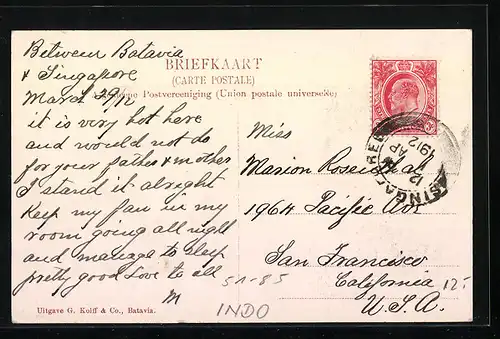 BRIEFKAART
(CARTE POSTALE)
Postvereeniging (Union postale universelle)
Between Batavia
& Singapore
March 29/12
it is very hot here
and would not do
for your father & mother
I stand it alright
Keep my fan in my
room going all night
and manage to sleep
pretty good Love to all
M
Miss
Marion Rosenthal
1964 Pacific Ave
San Francisco
California
U.S.A.
SINGAPORE
12
AP
1912
51-85
12.-
INDO
Uitgave G. Kolff & Co., Batavia.